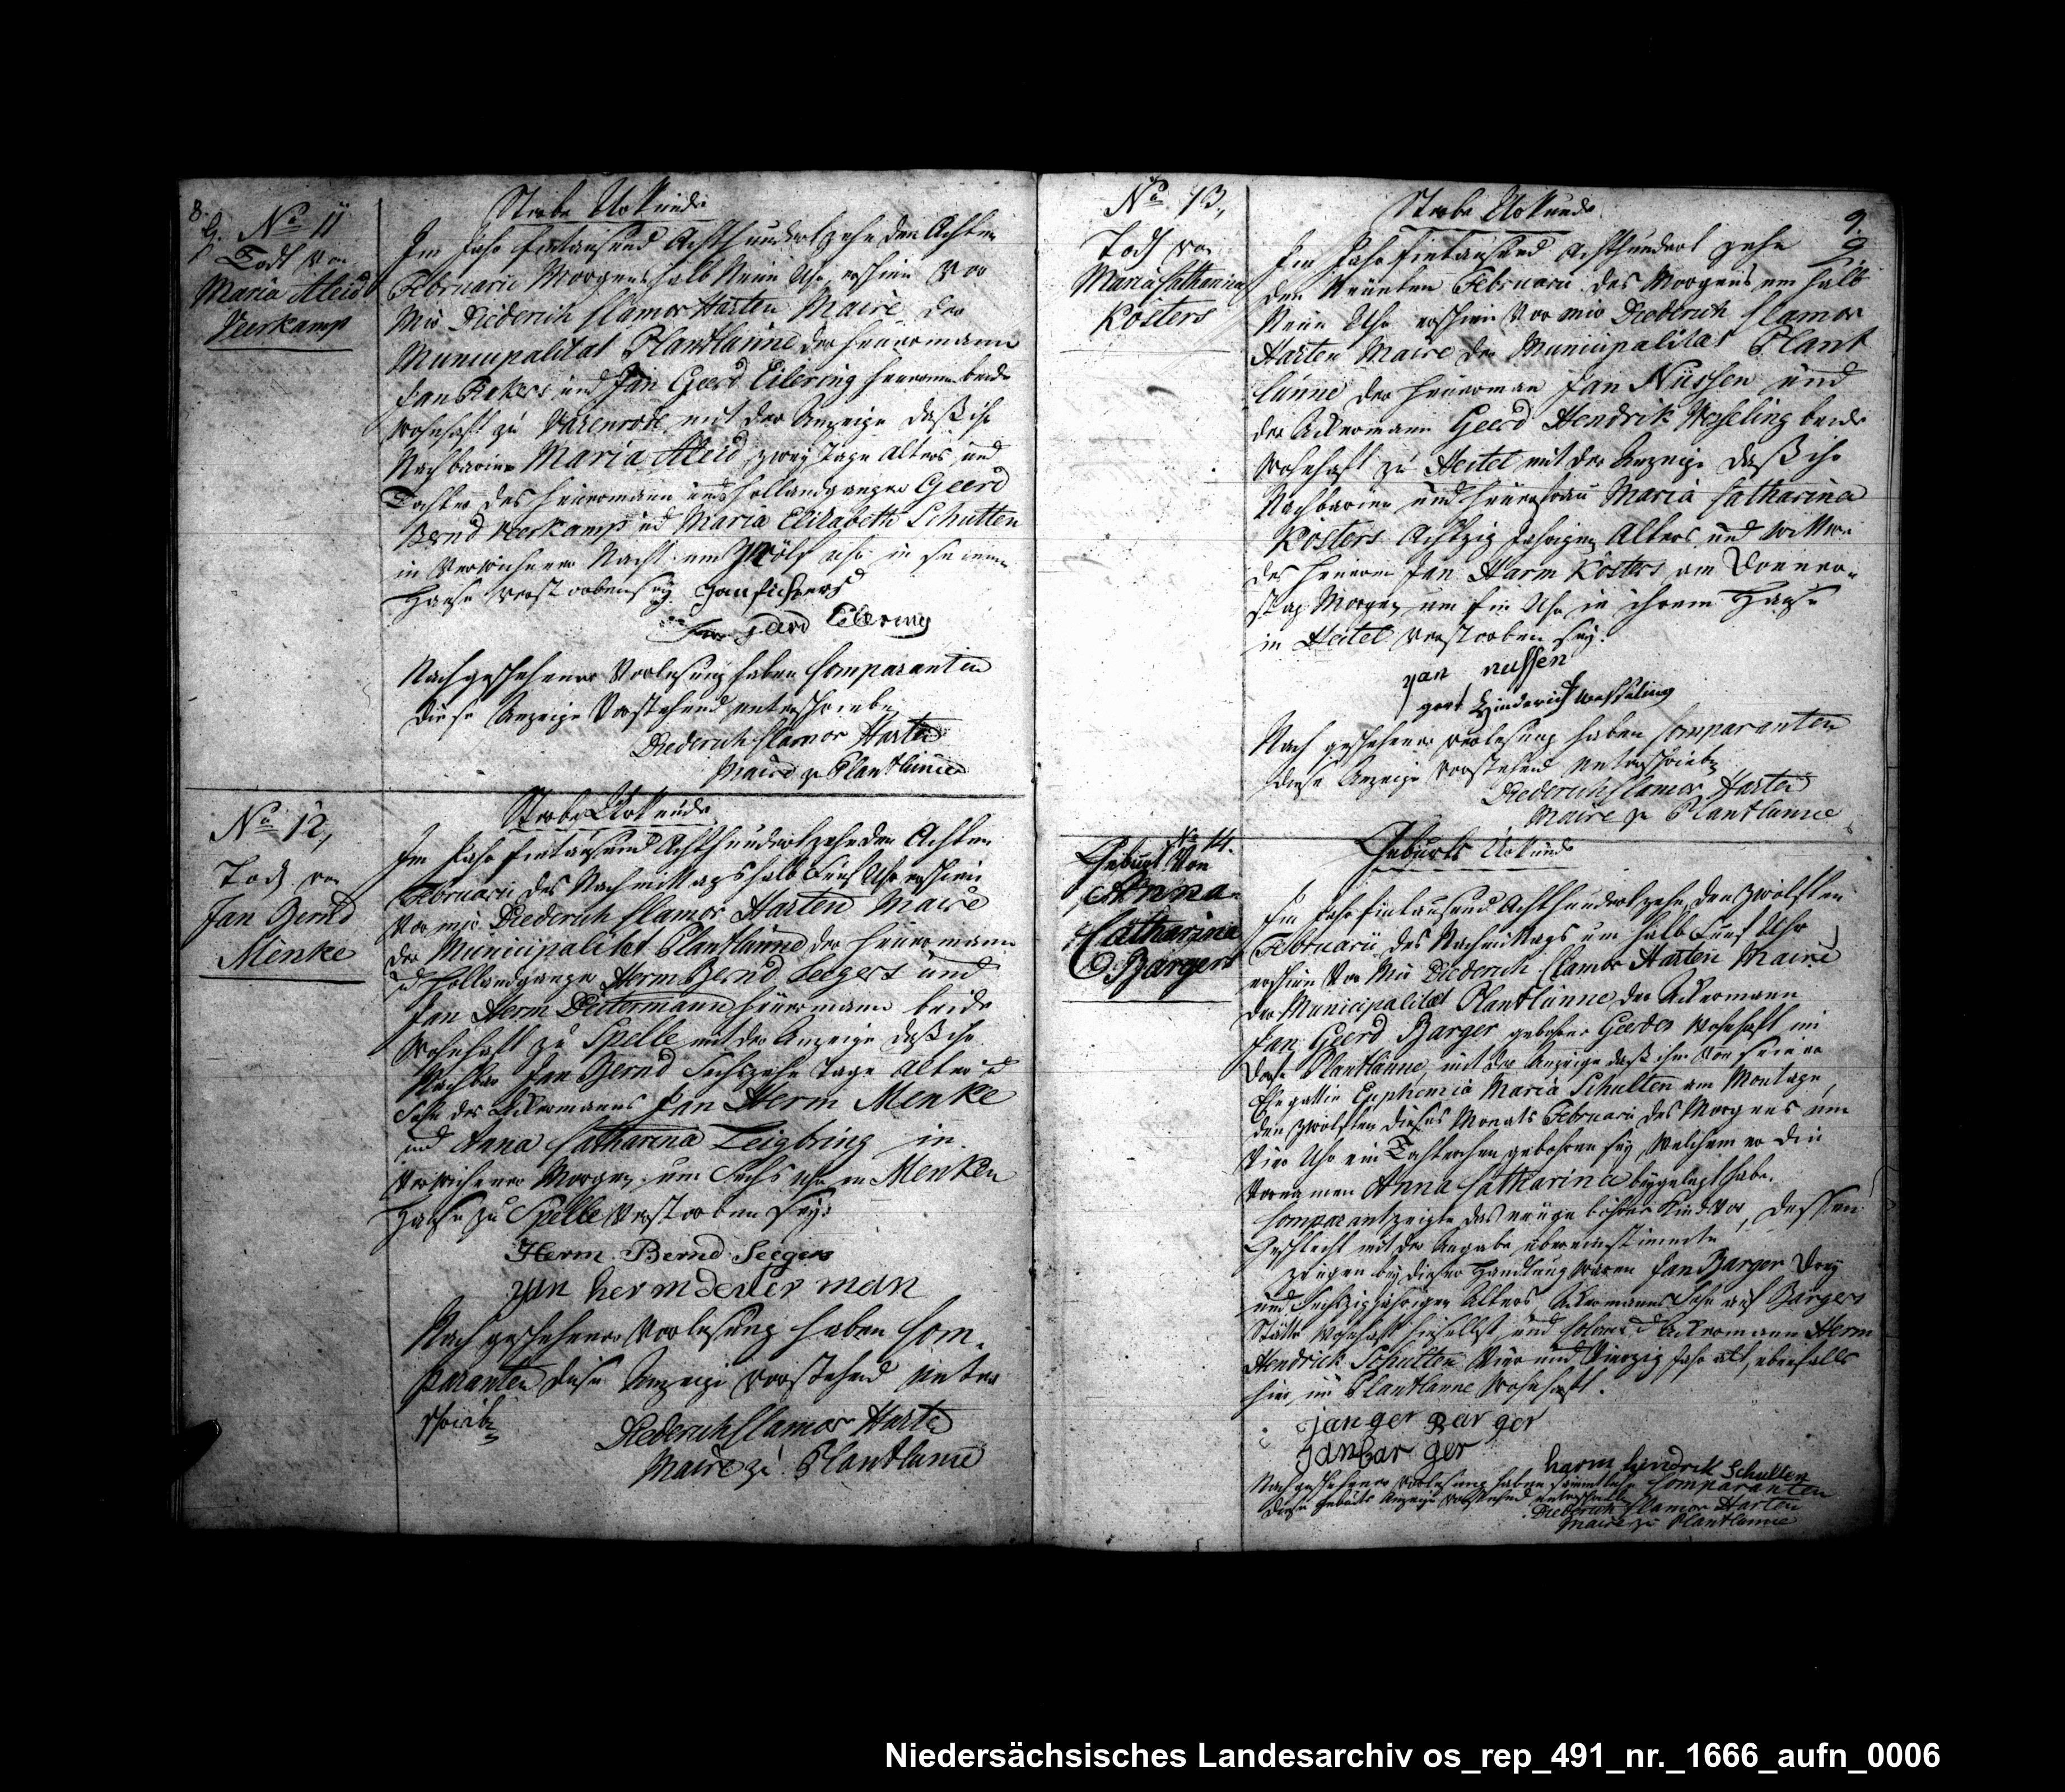 8.
No 11
Todt von
Maria Aleid
Veerkamp
Sterbe Urkunde
Im Jahr Eintausend Achthundert zehn den Achten
Februarii Morgens halb Neun Uhr erschien vor
Mir Diederich Clamor Harten Maire der
Municipalitat Plantlünne der Heuermann
Jan und Jan Geerd Eilering Heuermann beide
wohnhaft zu Varenrode mit der Anzeige daß ihr
Nachbarinn Maria Aleid zwey Tage Alters und
Tochter des Heuermann und Hollandganger Geerd
Bernd Veerkamp und Maria Elisabeth Schutten
in verwichener Nacht um Zwölf Uhr in seinem
Hause verstorben sey.
Jan gerd Eilering
Nach geschehener Vorlesung haben Comparanten
diese Anzeige Vorstehend unterschrieben
Diederich Clamor Harten
Maire zu Plantlünne
No 12,
Todt von
Jan Bernd
Menke
Sterbe Urkunde
Im Jahr Eintausend Achthundert zehn den Achten
Februarii des Nachmittags halb Fünf Uhr erschien
Vor mir Diederich Clamor Harten Maire
der Municipalitat Plantlünne der Heuermann
u Hollandganger Herm Bernd Seegers und
Jan Herm Deitermann Heuermann beide
wohnhaft zu Spelle mit der Anzeige daß ihr
Nachbar Jan Bernd Sechszehn Tage Alter u
Sohn des Ackermanns Jan Herm Menke
und Anna Catharina Teigbring in
Verwichener Morgen um Sechs Uhr in Menken
Hause zu Spelle Verstorben sey.
Herm Bernd Seegers
yan herm deiter man
Nach geschehener Vorlesung haben Com-
paranten diese Anzeige vorstehend unter
schrieben
Diederich Clamor Harten
Maire zu Plantlünne
9.
No 13,
Todt von
Maria Catharina
Kösters
Sterbe Urkunde
Im Jahr Eintausend Achthundert zehn
den Neunten Februarii des Morgens um halb
Neun Uhr erschien Vor mir Diederich Clamor
Harten Maire der Municipalitat Plant
lünne der Heuerman Jan Nüssen und
der Ackermann Geerd Hendrik Weßeling beide
wohnhaft zu Heitel mit der Anzeige daß ihr
Nachbarinn und Heuerfrau Maria Catharina
Kösters Achtzig jahrigen Alters und Wittwe
des Heuerm Jan Harm Kösters am Donner-
stag Morgen um Ein Uhr in ihrem Hause
in Heitel verstorben sey.
yan nussen
gert Hinderich Wessling
Nach geschehener Vorlesung haben Comparanten
diese Anzeige vorstehend unterschrieben
Diederich Clamor Harten
Maire zu Plantlünne
No 14.
Geburt Von
Anna
Catharina
Bargers
Geburts Urkunde
Im Jahr Eintausend Achthundert zehn den zwölften
Februarii des Nachmittags um halb Fünf Uhr
erschien Vor Mir Diederich Clamor Harten Maire
der Municipalitat Plantlünne der Ackermann
Jan Geerd Barger gebohrner Geerdes wohnhaft im
Dorfe Plantlünne, mit der Anzeige daß ihm von seiner
Ehegattin Euphemia Maria Schulten am Montage,
den zwölften dieses Monats Februari des Morgens um
Vier Uhr ein Töchterchen gebohren sey, welchem er den
Vornamen Anna Catharina beygelegt habe.
Comparant zeigte das neugebohrne Kind vor, dessen
Geschlecht mit der Angabe übereinstimmte
Zeugen bey dieser Handlung waren Jan Barger Drey
und Sechszigjährigen Alters Ackermanns Sohn auf Bargers
Stätte wohnhaft hieselbst und Colon u Ackermann Herm
Hendrick Schulten Vier und Vierzig Jahr alt, ebenfalls
hier in Plantlünne wohnhaft.
jan ger Bar ger
jan bar ger
harm hindrik Schulten
Nach geschehener Vorlesung haben sämmtliche Comparanten
diese Geburts Anzeige vorstehend unterschrieben
Diederich Clamor Harten
Maire zu Plantlünne
Niedersächsisches Landesarchiv os_rep_491_nr._1666_aufn_0006